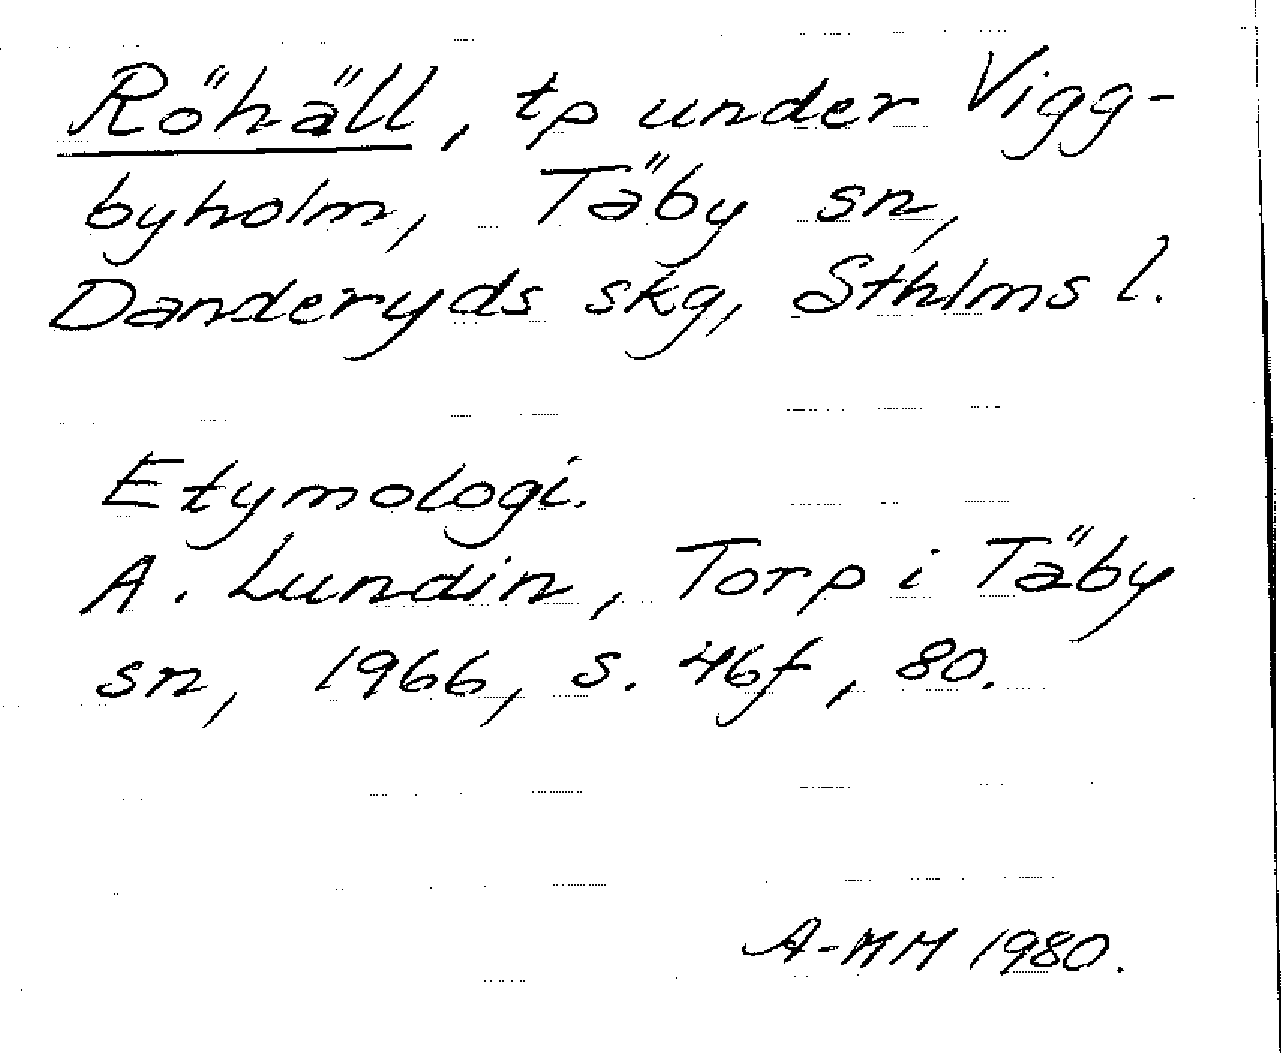 Röhäll, tp under Vigg-
byholm, Täby sn,
Danderyds skg, Sthlms l.
Etymologi.
A. Lundin, Torp i Täby
sn, 1966, s. 46f, 80.
A-MM 1980.